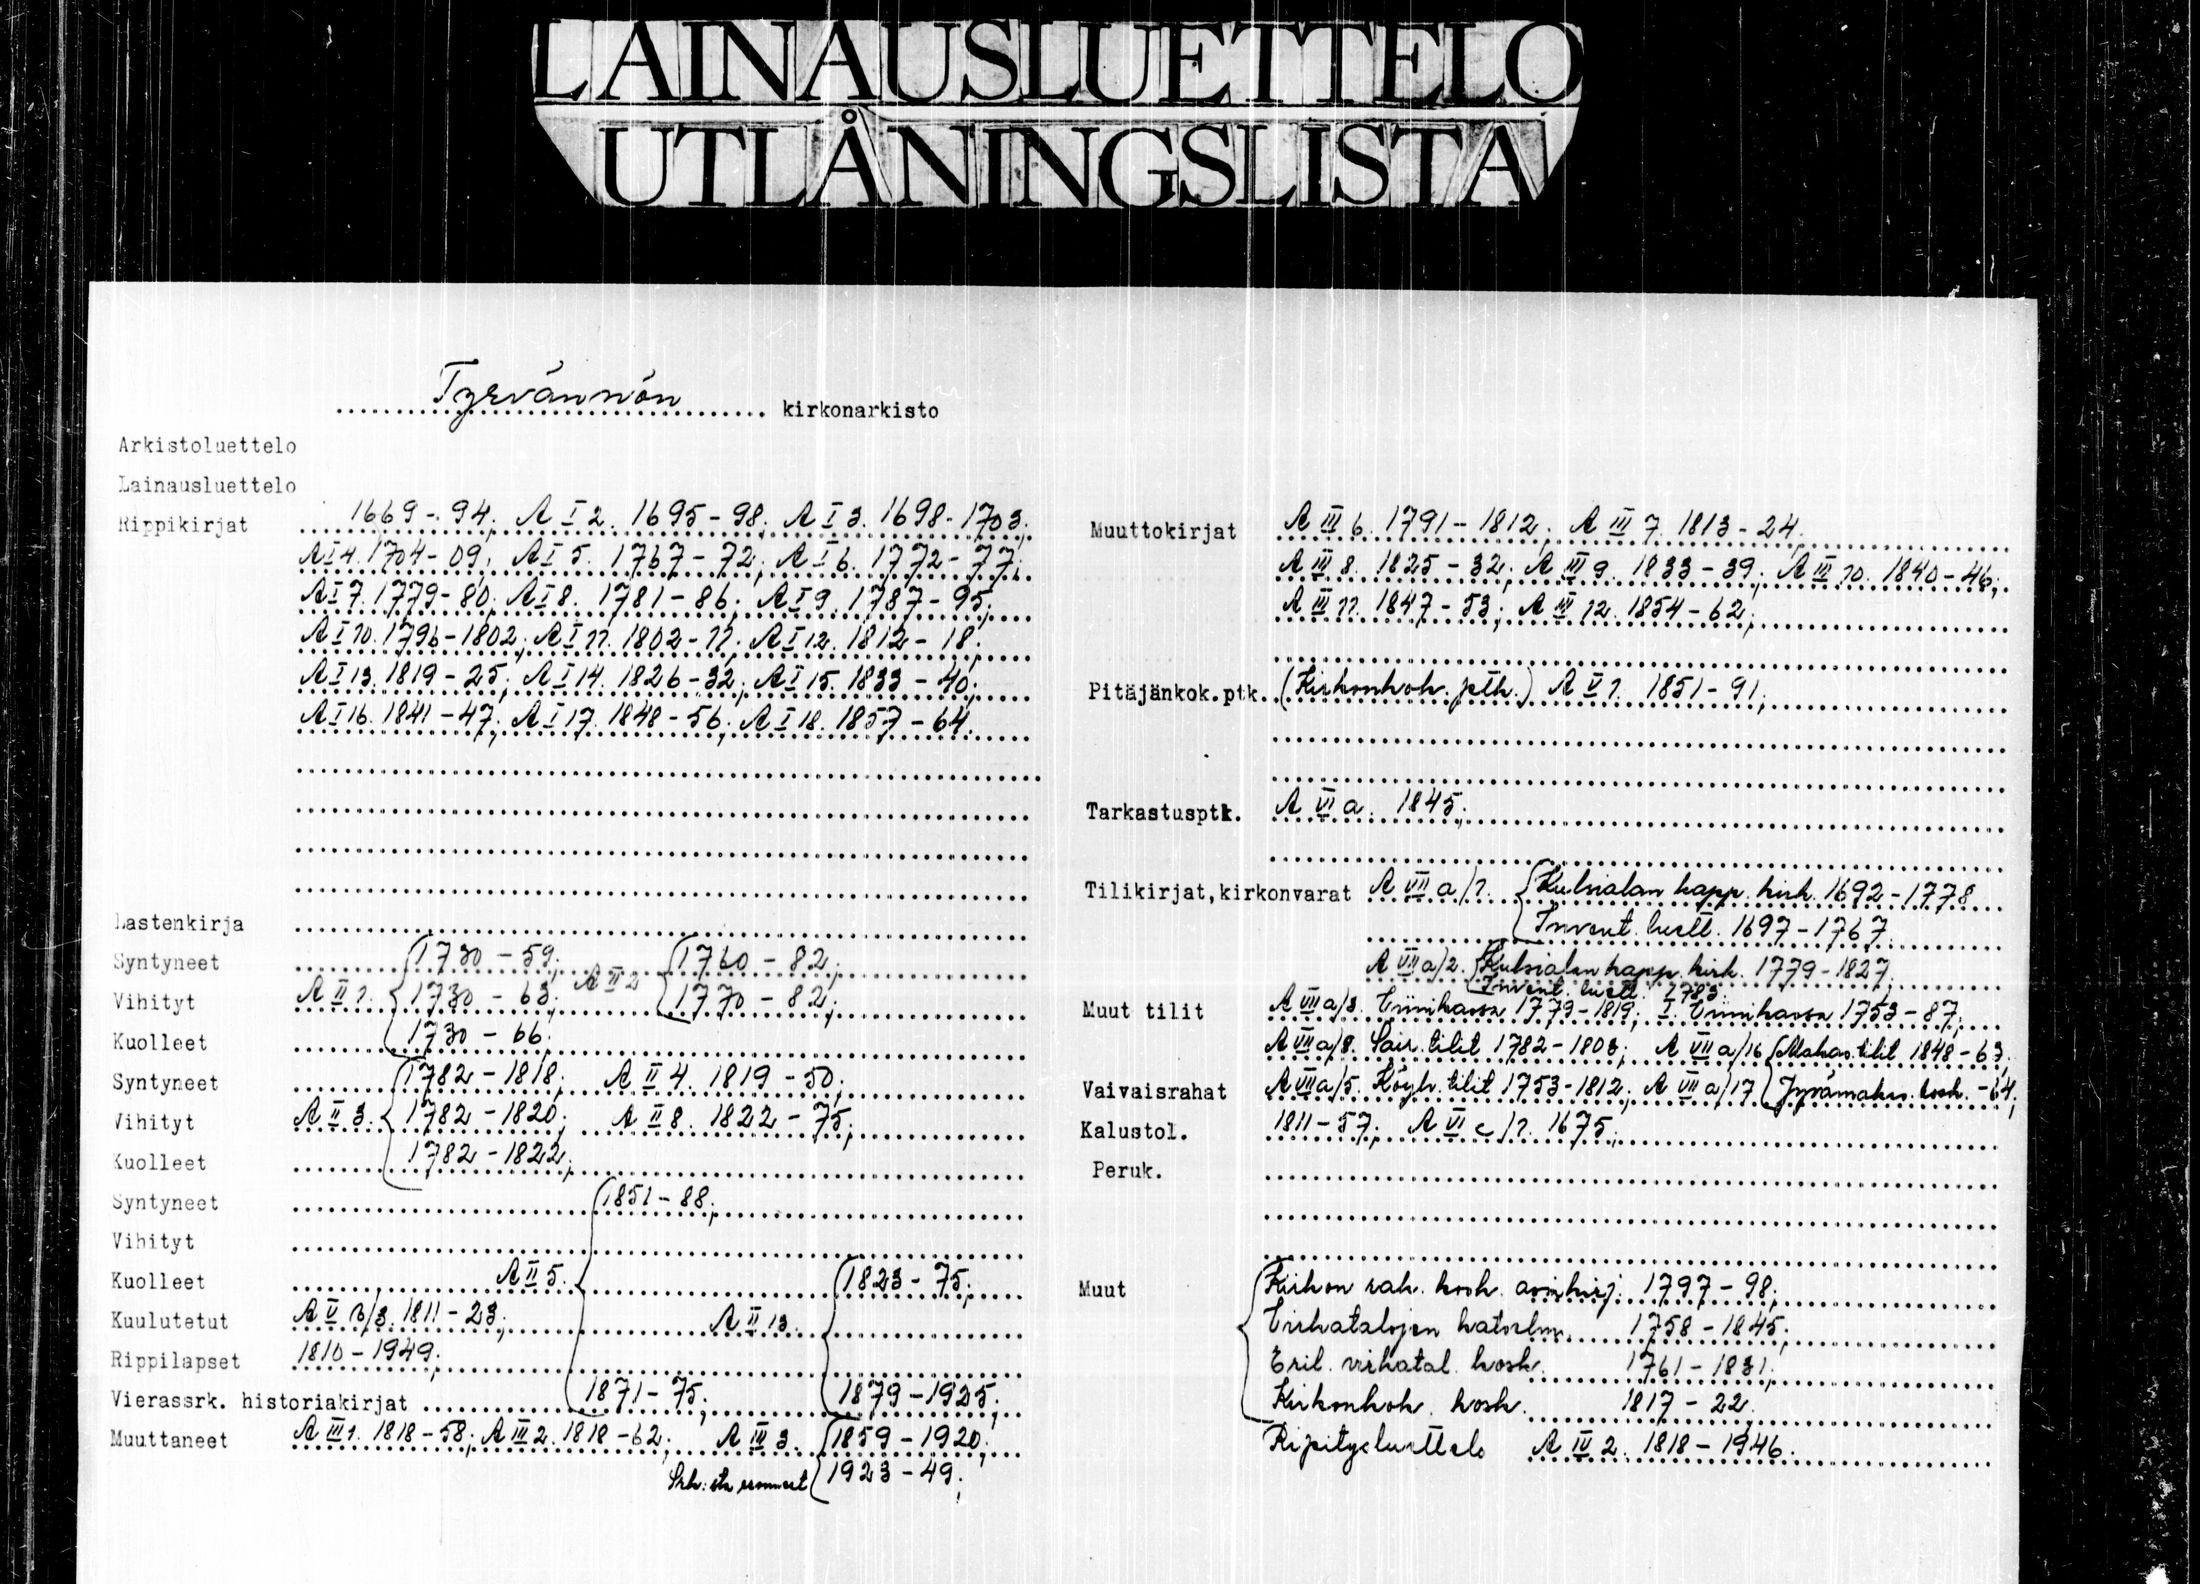 LAINAUSLUETTELO
UTLÅNINGSLISTA
Tyrvännön kirkonarkisto
Arkistoluettelo
Lainausluettelo
Rippikirjat 1669-94; A I 2. 1695-98; A I 3. 1698-1703;
A I 4. 1704-09; A I 5. 1767-72; A I 6. 1772-77;
A I 7. 1779-80; A I 8. 1781-86; A I 9. 1787-95;
A I 10. 1796-1802; A I 11. 1802-11; A I 12. 1812-18;
A I 13. 1819-25; A I 14. 1826-32; A I 15. 1833-40;
A I 16. 1841-47; A I 17. 1848-56; A I 18. 1857-64.
Lastenkirja
Syntyneet 1730-59; A II 2 1760-82;
Vihityt A II 1. 1730-63; 1770-82;
Kuolleet 1730-66;
Syntyneet 1782-1818; A II 4. 1819-50;
Vihityt A II 3. 1782-1820; A II 8. 1822-75;
Kuolleet 1782-1822;
Syntyneet 1851-88;
Vihityt
Kuolleet A II 5. 1823-75;
Kuulutetut A V B/3. 1811-23; A II 13.
Rippilapset 1810-1949;
Vierassrk. historiakirjat 1871-75; 1879-1925;
Muuttaneet A III 1. 1818-58; A III 2. 1818-62; A III 3. 1859-1920;
Srk:sta eronneet 1923-49;
Muuttokirjat A III 6. 1791-1812; A III 7. 1813-24;
A III 8. 1825-32; A III 9. 1833-39; A III 10. 1840-46;
A III 11. 1847-53; A III 12. 1854-62;
Pitäjänkok.ptk. (Kirkonkok. ptk.) A V 1. 1851-91;
Tarkastusptk. A VI a. 1845;
Tilikirjat,kirkonvarat A VII a/1. Kulsialan kapp. kirk. 1692-1778
Invent. luett. 1697-1767;
A VII a/2. Kulsialan kapp. kirk. 1779-1827;
Invent. luett. 1783;
Muut tilit A VII a/3. 1779-1819; 1753-87;
A VII a/8. Sair. tilit 1782-1803; A VII a/16 Makas. tilit 1848-63;
Vaivaisrahat A VII a/5. Köyh. tilit 1753-1812; A VII a/17 Jyvämakas. kosk. -64;
Kalustol. 1811-57; A VI c/1. 1675;
Peruk.
Muut Kirkon rah. kosk. asiakirj. 1797-98;
Virkatalojen katselm. 1758-1845;
Eril. virkatal. kosk. 1761-1831;
Kirkonkok. kosk. 1817-22.
Ripitysluettelo A IV 2. 1818-1946.